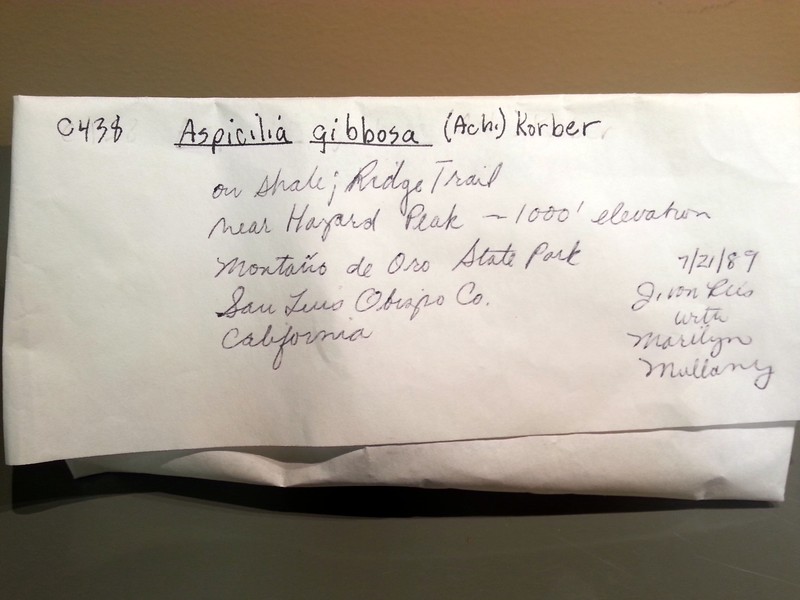 C438 Aspicilia gibbosa (Ach.) Korber
on shale; Ridge Trail
near Hazard Peak ~1000' elevation
Montaño de Oro State Park
San Luis Obispo Co.
California
7/21/89
J. von Reis
with
Marilyn
Mullany